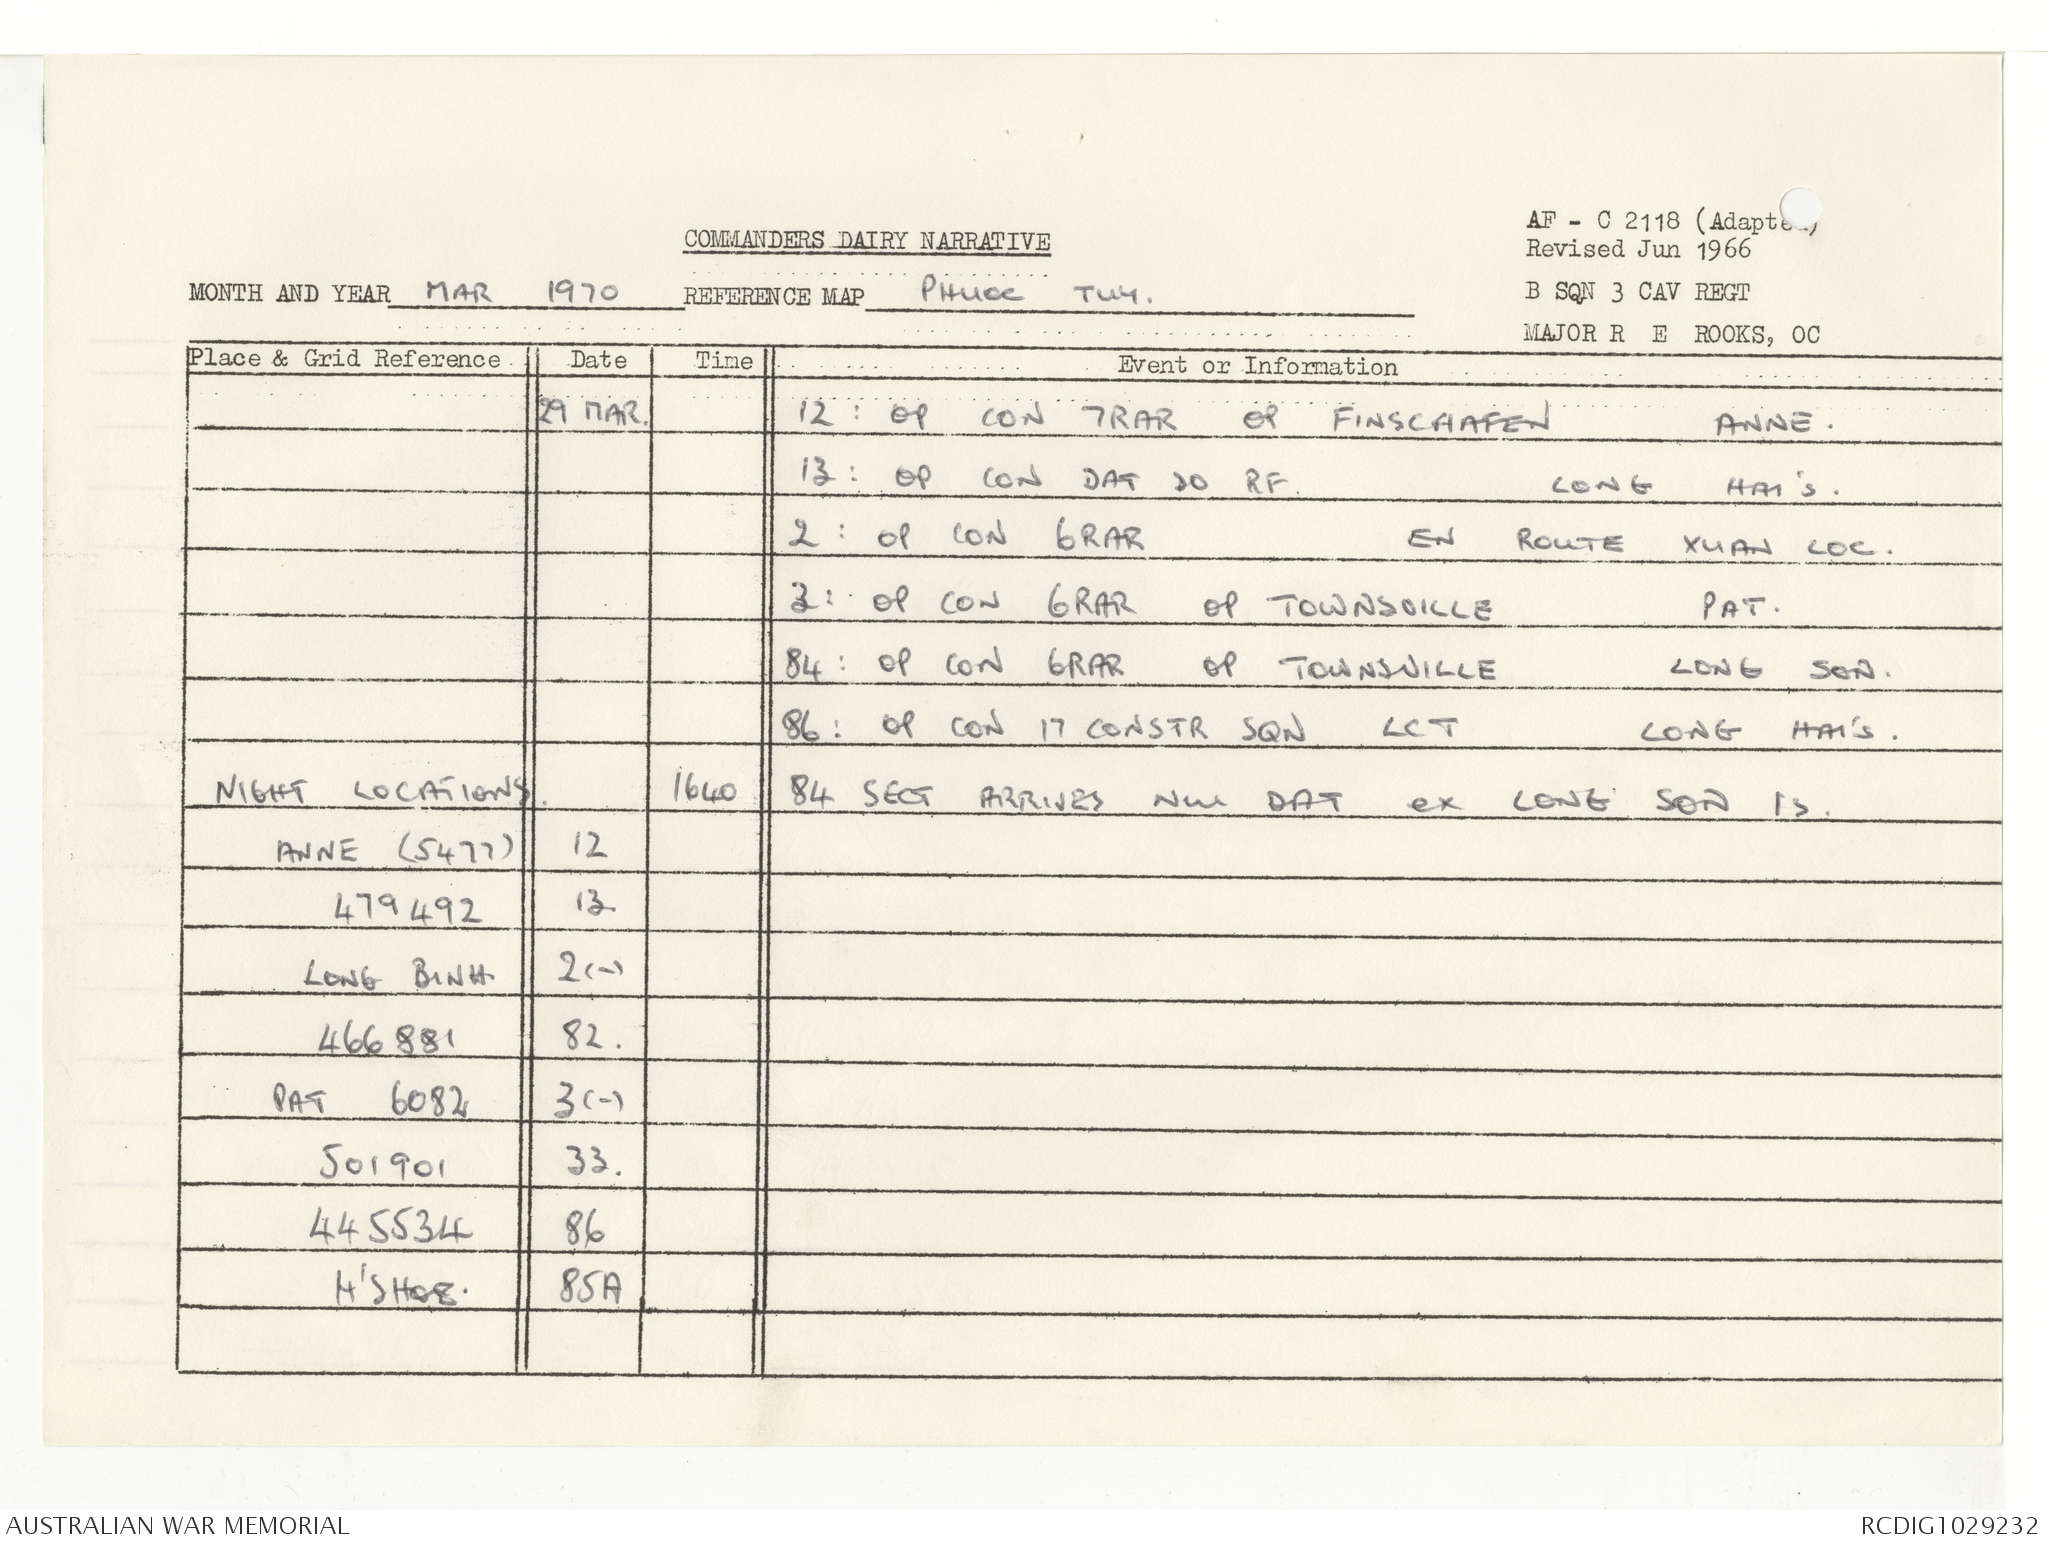 AF - C 2118 (Adapted)
Revised Jun 1966
COMMANDERS DAIRY NARRATIVE
MONTH AND YEAR MAR 1970 REFERENCE MAP PHUOC TUY.
B SQN 3 CAV REGT
MAJOR R E ROOKS, OC
Place & Grid Reference Date Time Event or Information
29 MAR. 12: OP CON 7RAR OP FINSCHAFEN ANNE.
13: OP CON DAT DO RF. LONG HAI'S.
2: OP CON 6RAR EN ROUTE XUAN LOC.
3: OP CON 6RAR OP TOWNSVILLE PAT.
84: OP CON 6RAR OP TOWNSVILLE LONG SON.
86: OP CON 17 CONSTR SQN LCT LONG HAI'S.
NIGHT LOCATIONS. 1640 84 SECT ARRIVES NUI DAT ex LONG SON IS.
ANNE (5477) 12
479492 13
LONG BINH 2(-)
466881 82.
PAT 6082 3(-)
501901 33.
445534 86
H'SHOE. 85A
AUSTRALIAN WAR MEMORIAL RCDIG1029232